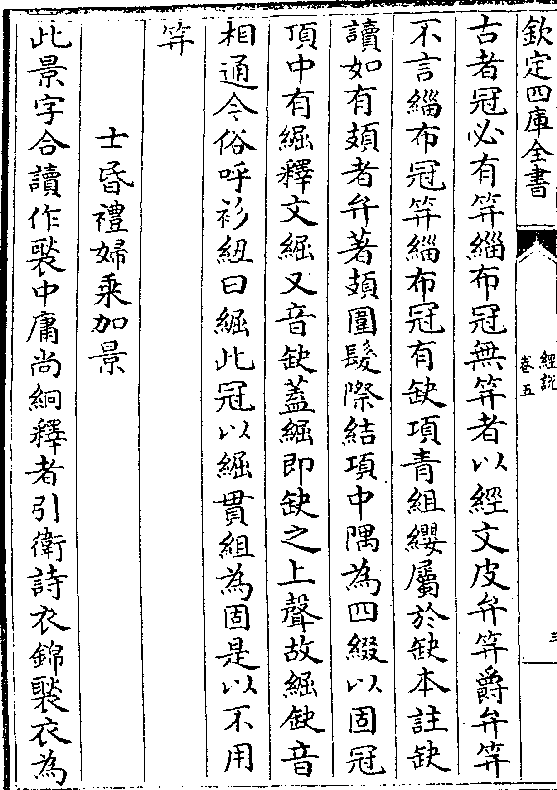 欽定四庫全書
經説
卷五
三
古者冠必有笄緇布冠無笄者以經文皮弁笄爵弁笄
不言緇布冠笄緇布冠有缺項青組纓屬於缺本註缺
讀如有頍者弁著頍圍髮際結項中隅為四綴以固冠
項中有𦀗釋文𦀗又音缺蓋𦀗即缺之上聲故𦀗缺音
相通今俗呼衫紐曰𦀗此冠以𦀗貫組為固是以不用
笄
士昏禮婦乘加景
此景字合讀作褧中庸尚絅釋者引衛詩衣錦褧衣為